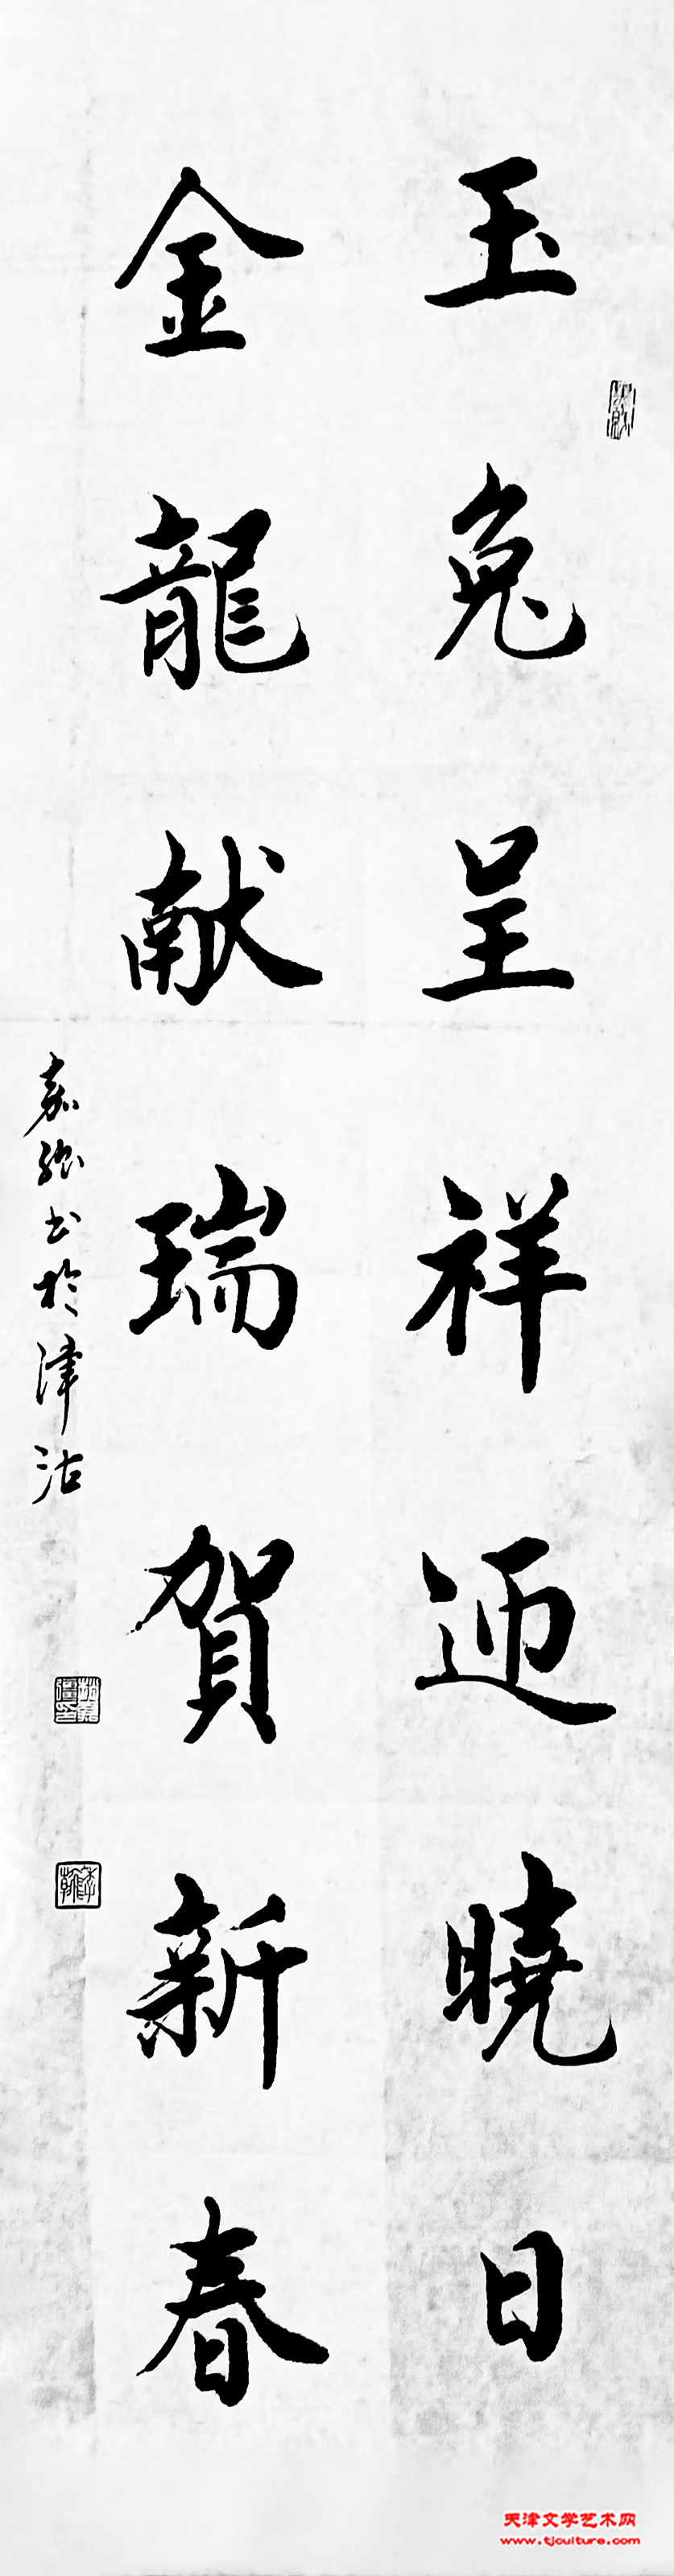 玉兔呈祥迎曉日
金龍献瑞賀新春
嘉強书於津沽
天津文学艺术网
www.tjculture.com